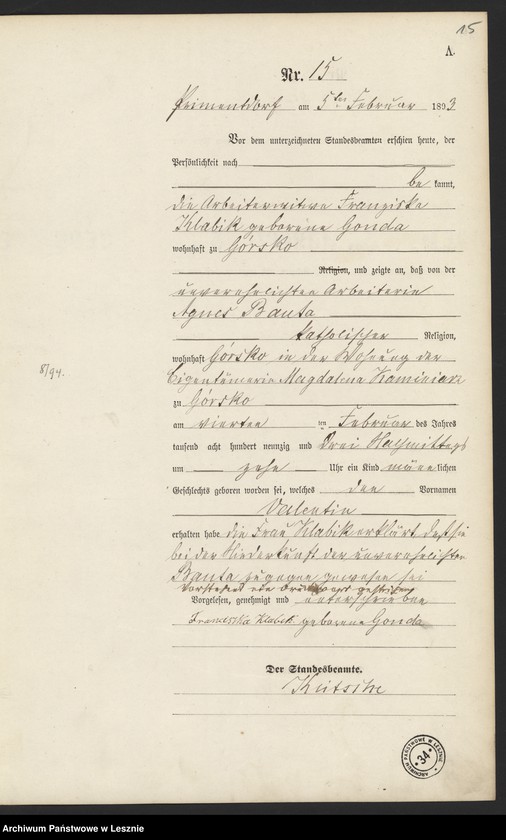 15
A.
Nr. 15
Priment dorf am 5ten Februar 1893
Vor dem unterzeichneten Standesbeamten erschien heute, der
Persönlichkeit nach
be kannt,
die Arbeiterwitwe Franziska
Klabik geborene Gonda
wohnhaft zu Górsko
Religion, und zeigte an, daß von der
unverehelichten Arbeiterin
Agnes Banta
katholischer Religion,
wohnhaft Górsko in der Wohnung der
Eigentümerin Magdalena
zu Górsko
am vierten ten Februar des Jahres
tausend acht hundert neunzig und drei Nachmittags
um zehn Uhr ein Kind männlichen
Geschlechts geboren worden sei, welches den Vornamen
Valentin
erhalten habe die Frau Klabik erklärt daß sie
bei der Niederkunft der unverehelichten
Banta zugegen gewesen sei
Vorstehend ein Druckwort gestrichen
Vorgelesen, genehmigt und unterschrieben
Franciska Klabik geborene Gonda
Der Standesbeamte.
8/94.
ARCHIWUM PAŃSTWOWE W LESZNIE
34
Archiwum Państwowe w Lesznie